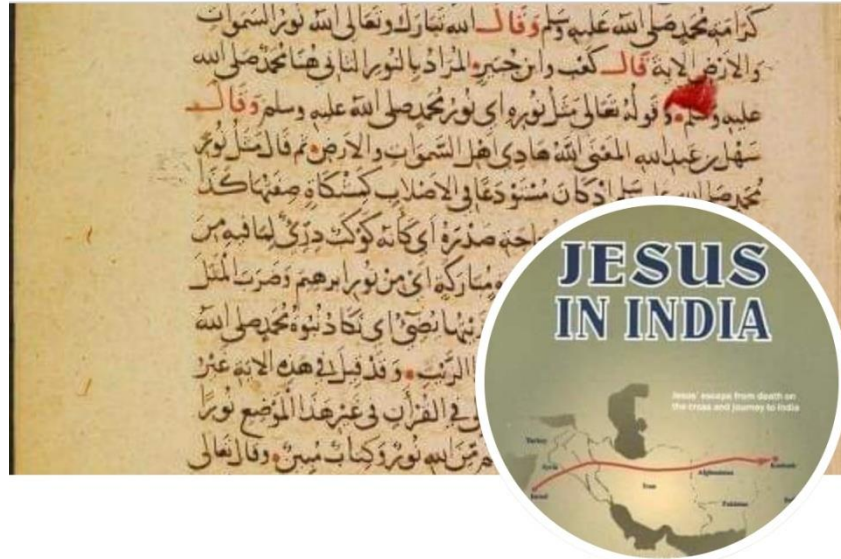 كرامة محمد صلى الله عليه وسلم وقال الله تبارك وتعالى الله نور السموات
والارض الاية قال كعب وابن جبير المراد بالنور الثانى هنا محمد صلى الله
عليه وسلم وقوله تعالى مثل نوره اى نور محمد صلى الله عليه وسلم وقال
سهل بن عبد الله المعنى الله هادى اهل السموات والارض ثم قال مثل نور
محمد صلى الله عليه وسلم اذ كان مستودعا فى الاصلاب كمشكاة صفتها كذا
صدره اى كانه كوكب درى لما فيه من
مباركة اى من نور ابرهيم وضرب المثل
زيتها يضئ اى تكاد نبوة محمد صلى الله
الزيت وقد قيل فى هذه الاية غير
فى القران فى غير هذا الموضع نورا
من الله نور وكتاب مبين وقال تعالى
JESUS
IN INDIA
Jesus' escape from death on
the cross and journey to India
Turkey
Syria
Israel
Iran
Afghanistan
Pakistan
Kashmir